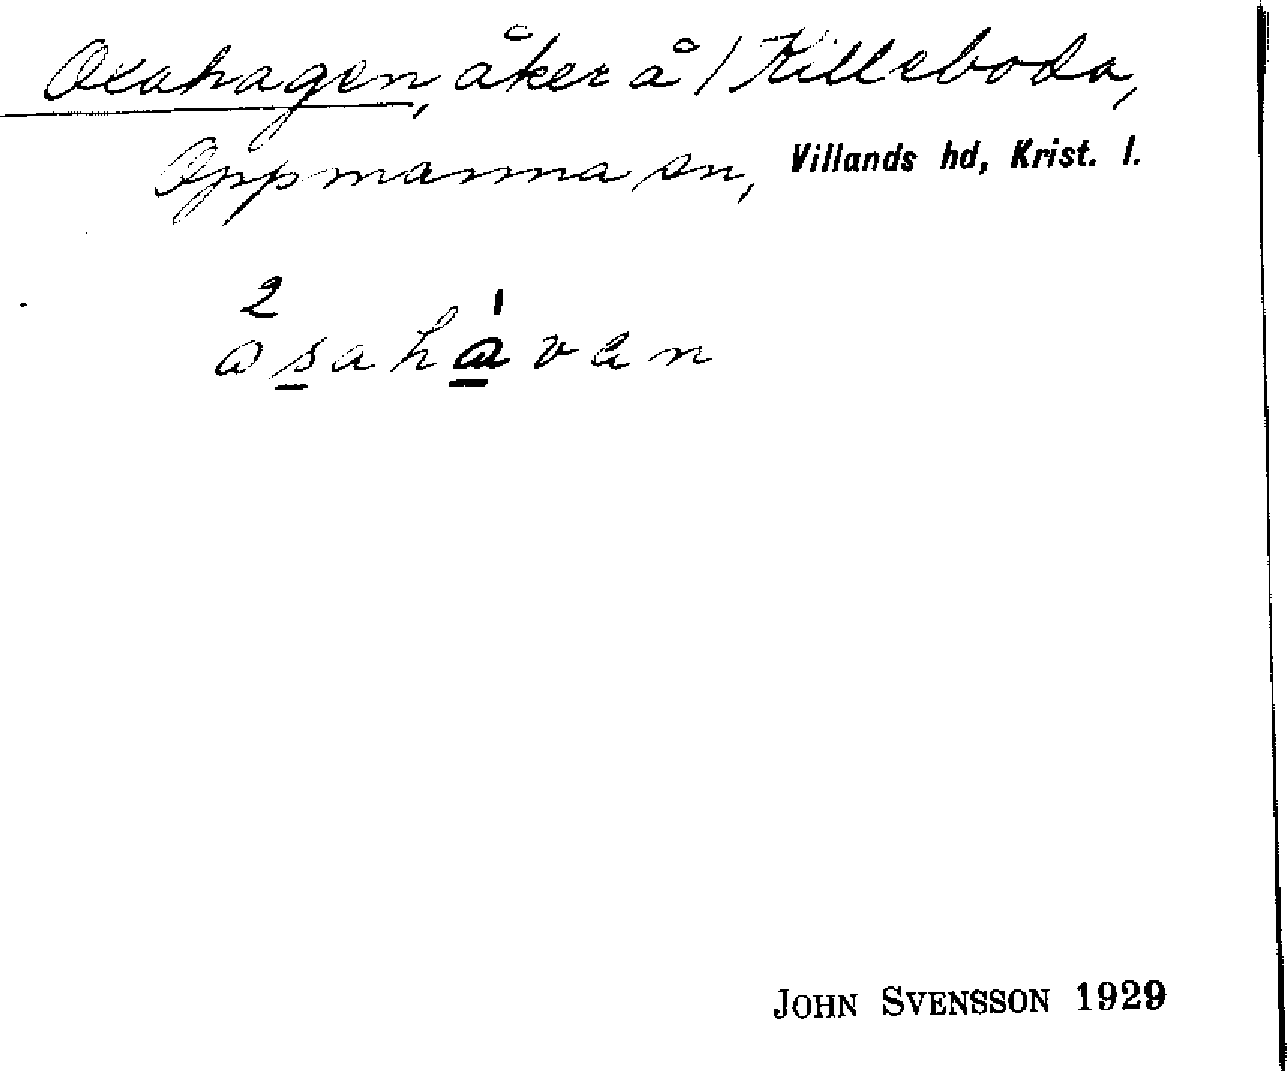 Oxahagen, åker å / Killeboda,
Oppmanna sn, Villands hd, Krist. l.
2 1
asahavan
JOHN SVENSSON 1929